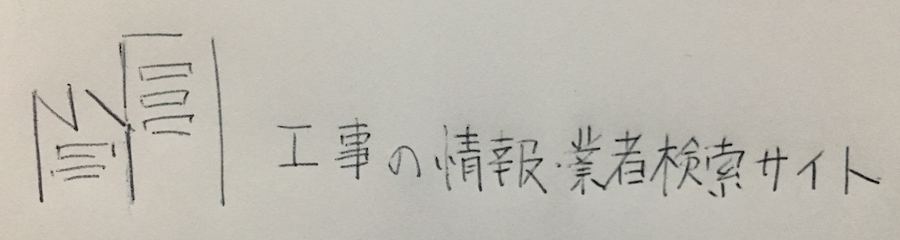 工事の情報・業者検索サイト